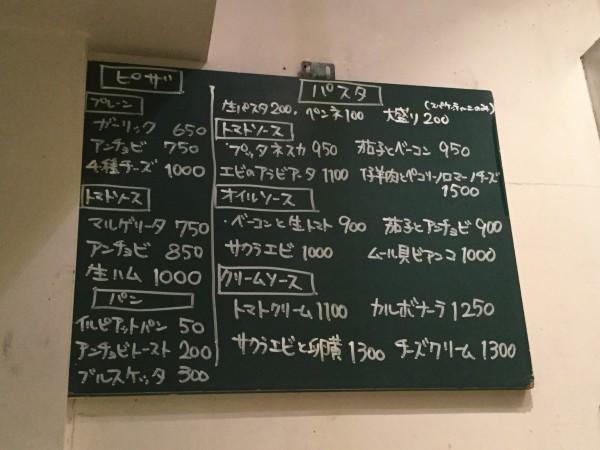 ピザ
プレーン
ガーリック 650
アンチョビ 750
4種チーズ 1000
トマトソース
マルゲリータ 750
アンチョビ 850
生ハム 1000
パン
イルピアットパン 50
アンチョビトースト 200
ブルスケッタ 300
パスタ
生パスタ200. ペンネ100 大盛り200 (スパゲッティーニのみ)
トマトソース
プッタネスカ 950 茄子とベーコン 950
エビのアラビアータ 1100 仔羊肉とペコリーノロマーノチーズ 1500
オイルソース
・ベーコンと生トマト 900 茄子とアンチョビ 900
サクラエビ 1000 ムール貝ビアンコ 1000
クリームソース
トマトクリーム 1100 カルボナーラ 1250
サクラエビと卵黄 1300 チーズクリーム 1300